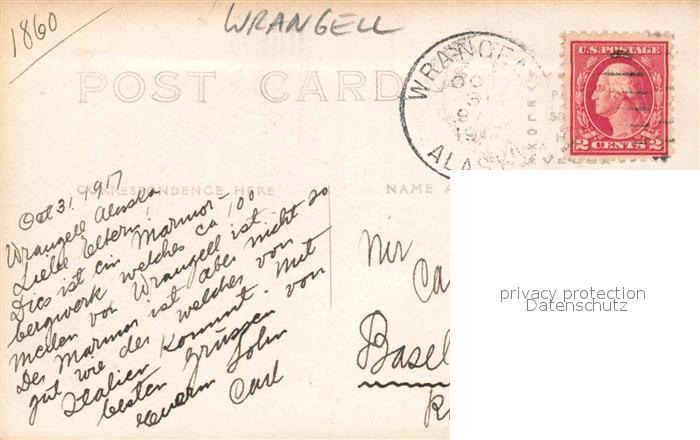 1860
WRANGELL
POST CARD
WRANGE
OC
31
19
ALASK
U.S. POSTAGE
2 CENTS 2
CORRESPONDENCE HERE
NAME A
Oct 31, 1917
Wrangell Alaska
Liebe Eltern!
Dies ist ein Marmor-
bergwerk welches ca 100
meilen von Wrangell ist.
Der Marmor ist aber nicht so
gut wie der welches von
Italien kommt. Mit
besten Grüssen von
Euerm Sohn
Carl
Mr
Ca
Basel
privacy protection
Datenschutz